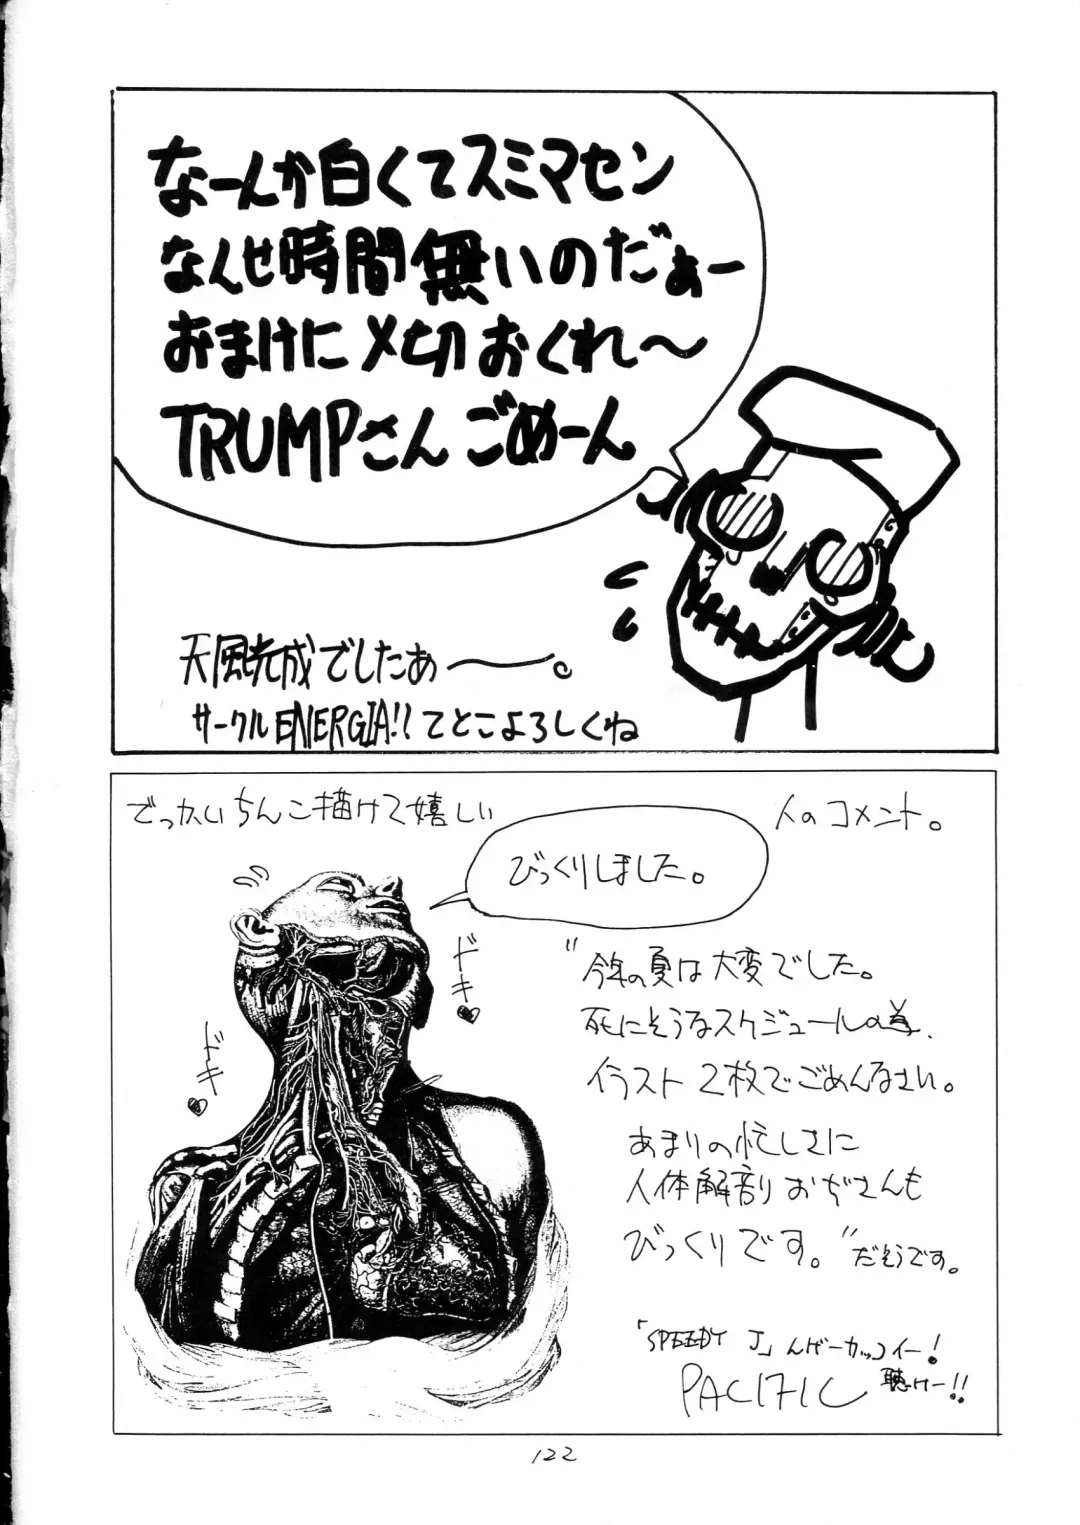 なーんか白くてスミマセン
なんせ時間無いのだぁー
おまけに〆切おくれ〜
TRUMPさんごめーん
天風完成でしたぁ――。
サークルENERGIA!! てとこよろしくね
でっかいちんこ描けて嬉しい人のコメント。
びっくりしました。
ドキ♥
ドキ♥
"今年の夏は大変でした。
死にそうなスケジュールの為、
イラスト2枚でごめんなさい。
あまりの忙しさに
人体解剖おぢさんも
びっくりです。"だそうです。
「SPEEDY J」んげーカッコイー!
PACIFIC 聴けー!!
122